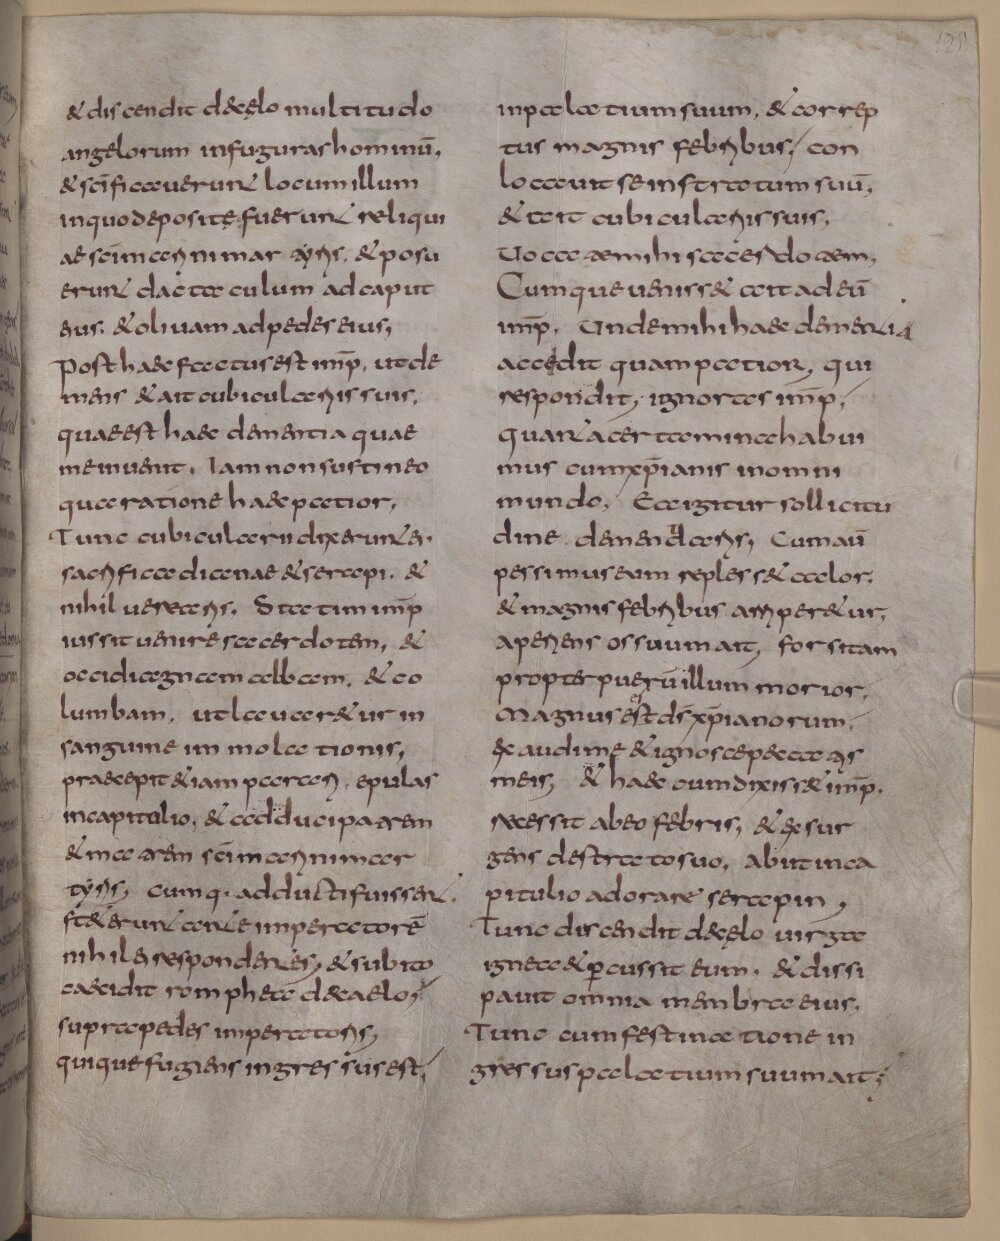 & discendit de cęlo multitudo
angelorum infiguras hominū,
& scīficauerunt locum illum
inquo deposite fuerunt reliqui
ae scīm carini martyris. & posu
erunt dactaculum ad caput
eius. & oliuam ad pedes eius;
Post haec factus est imp̄, ut de
mens & ait cubiculariis suis,
quae est haec dementia quae
me inuenit. Iam non sustineo
qua ratione haec patior,
Tunc cubicularii dixerunt ei.
sacrifica dicenae & serapi. &
nihil uerearis. Statim imp̄
iussit uenire sacerdotem, &
occidi agnam albam, & co
lumbam, ut lauar&ur in
sanguine immolationis,
praecepit & iam parari, epulas
in capitolio, & adduci patrem
& matrem scī marini mar
tyris, cumq. adducti fuissent.
st&erunt ante imperatorē
nihil ei respondentes, & subito
caecidit romphea de caelo,
supra pedes imperatoris,
quique fugiens ingressus est,
in palatium suum, & correp
tus magnis febribus, con
locauit se in stratum suū,
& ait cubiculariis suis,
Uocate mihi sacerdotem,
Cumque ueniss& ait ad eū
imp̄. Unde mihi haec dementia
accedit quam patior, qui
respondit, ignoras imp̄,
quanta certamina habui
mus cum xp̄ianis in omni
mundo, Ex igitur sollicitu
dine. demendaris, Cum aū
pessimus eum repless& calor,
& magnis febribus arriper&ur,
aperiens os suum ait, forsitam
propter puerū illum morior,
Magnus es
est dś xp̄ianorum,
exaudi me & ignosce peccatis
meis, & haec cum dixiss& imp̄.
recessit ab eo febris, & exsur
gens de strato suo, abiit in ca
pitulio adorare serapin,
Tunc discendit de cęlo uirga
ignea & percussit eum, & dissi
pauit omnia membra eius.
Tunc cum festinatione in
gressus palatium suum ait;